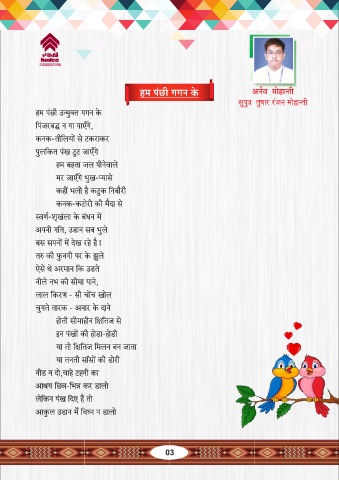 हडको
hudco
हम पंछी गगन के
अर्नव मोहान्ती
सुपुत्र तुषार रंजन मोहान्ती
हम पंछी उन्मुक्त गगन के
पिंजरबद्ध न गा पाएँगे,
कनक-तीलियों से टकराकर
पुलकित पंख टुट जाएँगे
हम बहता जल पीनेवाले
मर जाएँगे भुख-प्यासे
कहीं भली है कटुक निबौरी
कनक-कटोरी की मैदा से
स्वर्ण-शृखंला के बंधन में
अपनी गति, उडान सब भुले
बस सपनों में देख रहे है।
तरु की फुनगी पर के झुले
ऐसे थे अरमान कि उडते
नीले नभ की सीमा पाने,
लाल किरण - सी चोंच खोल
चुगते तारक - अनार के दाने
होती सीमाहीन क्षितिज से
इन पंखों की होडा-होडी
या तो क्षितिज मिलन बन जाता
या तनती साँसों की डोरी
नीड न दो,चाहे टहनी का
आश्रय छिन्न-भिन्न कर डालो
लेकिन पंख दिए हैं तो
आकुल उडान में विघ्न न डालो
03